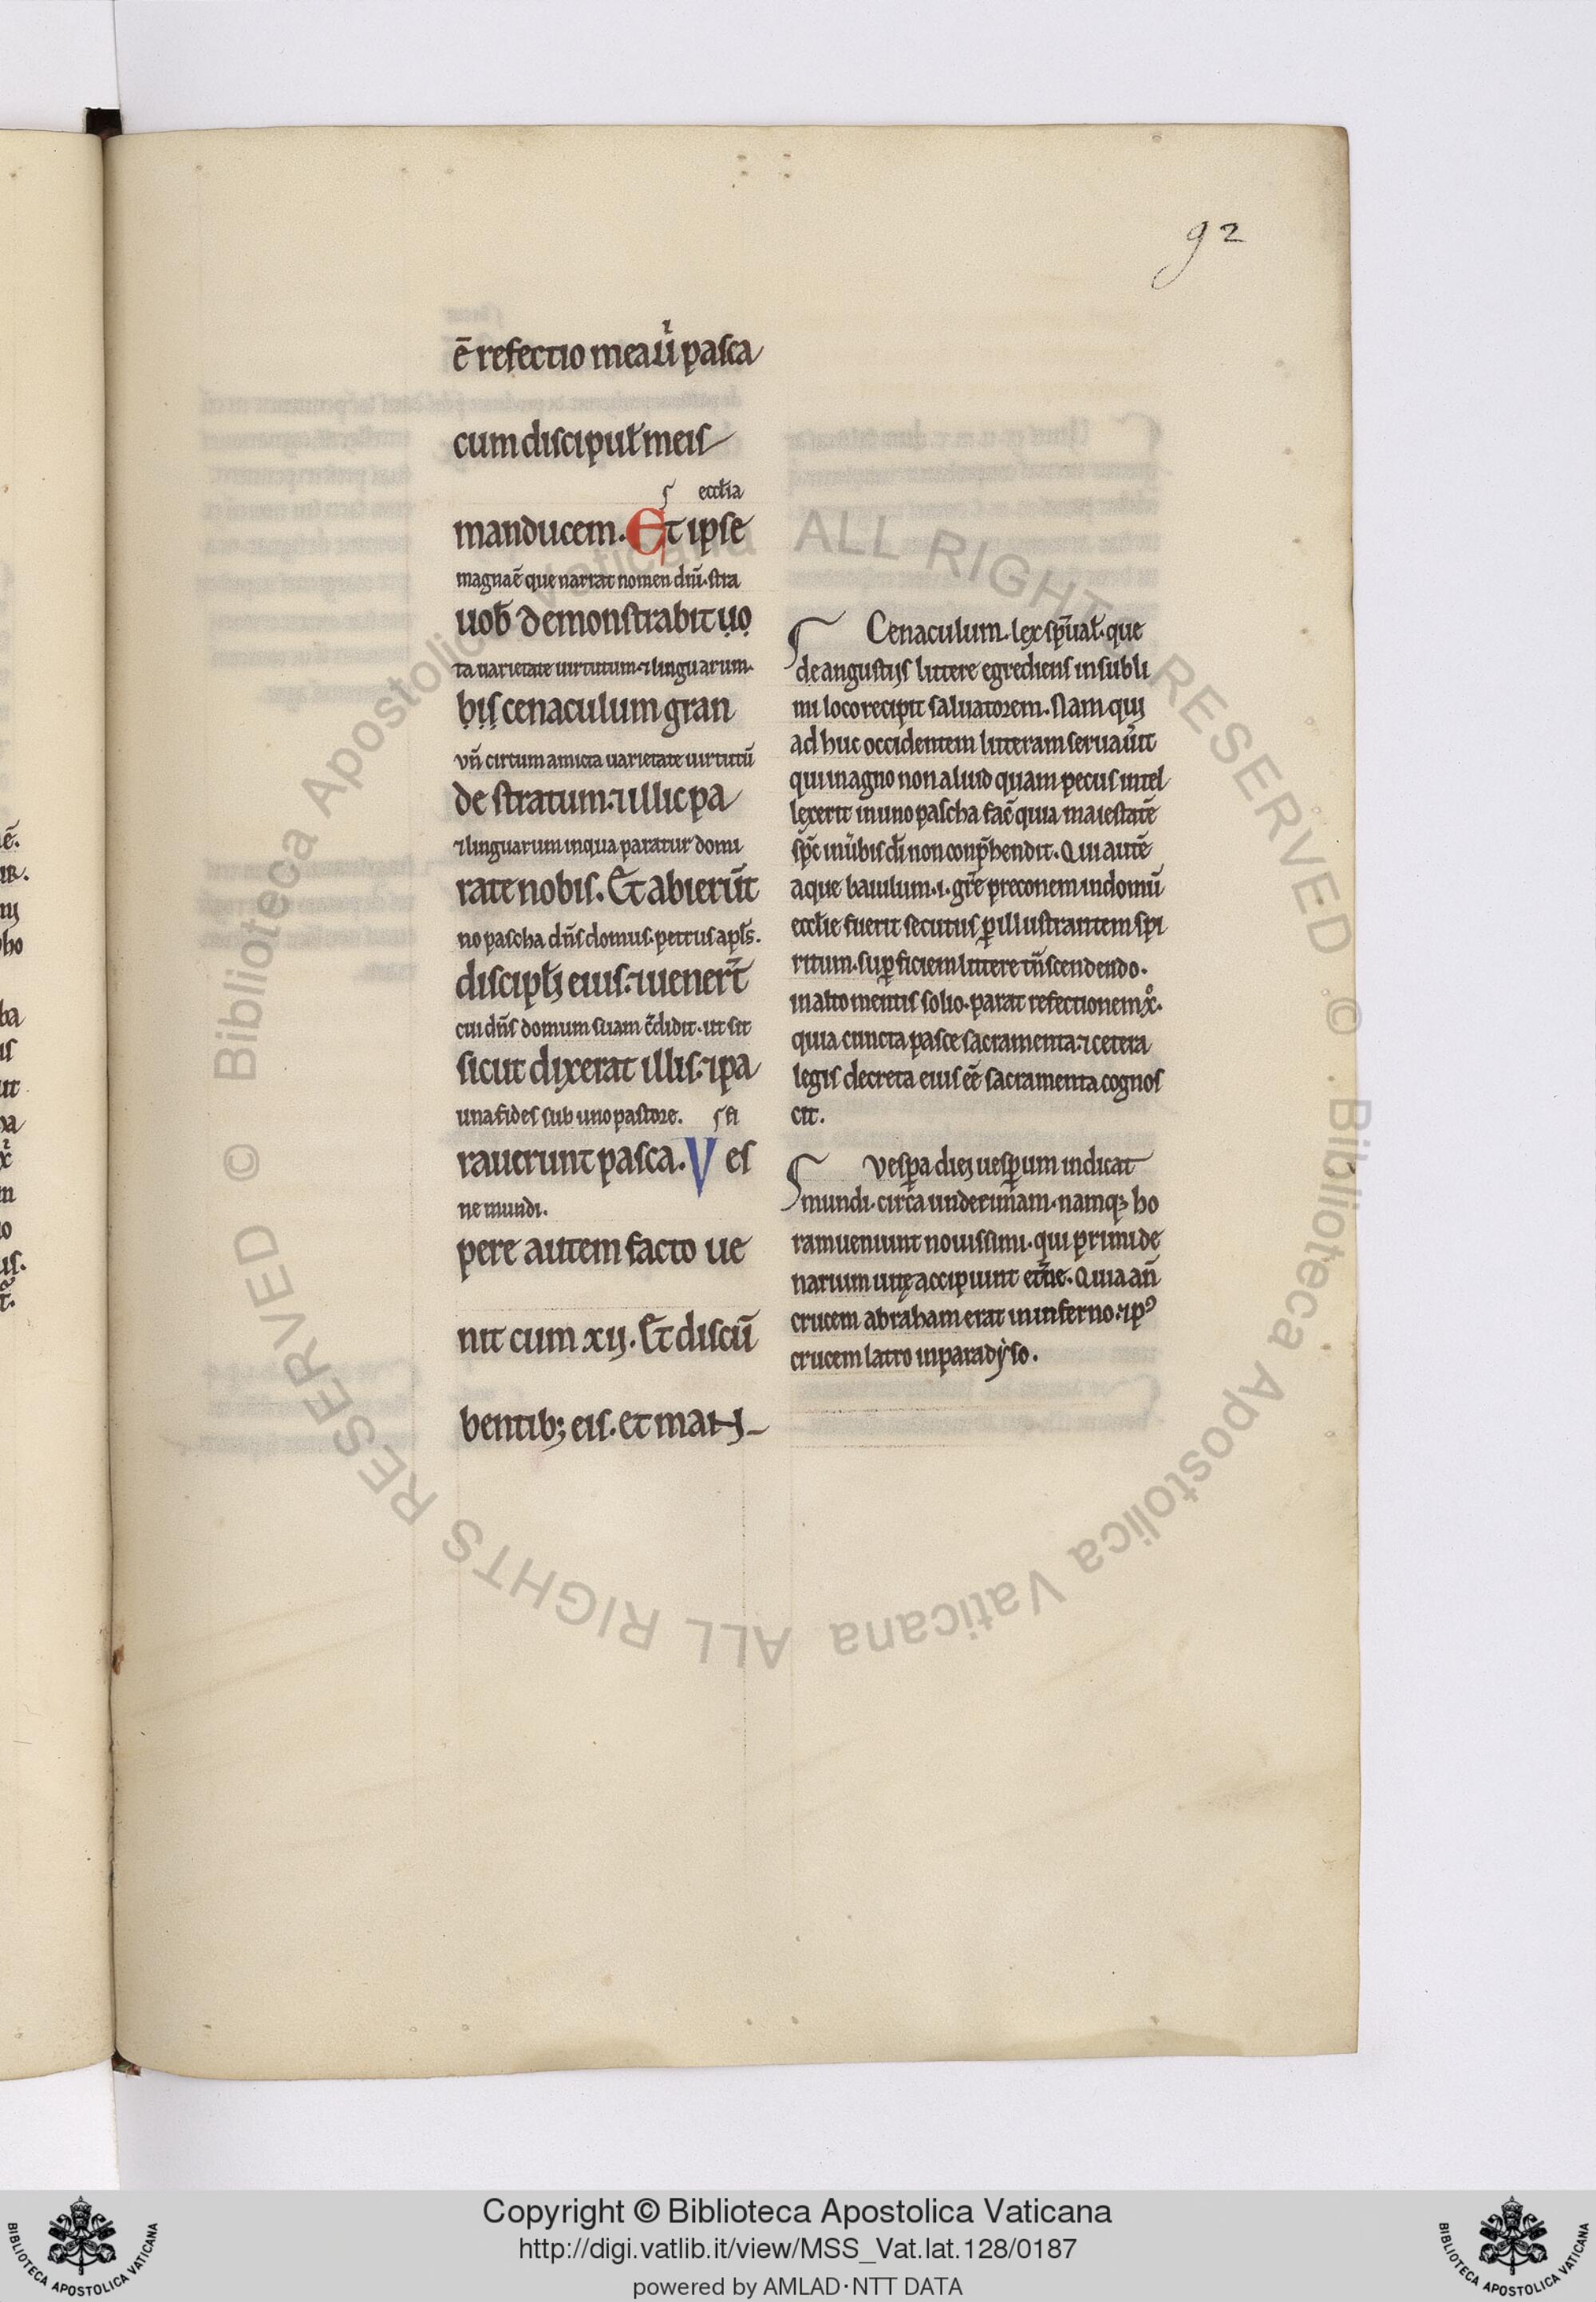 92
ē refectio mea ů pasca
cum discipul̄ meis
ſ eccl̄ia
manducem. Et ipse
magna ē que narrat nomen dn̄i. stra
uob̄ demonstrabit uo
ta uarietate uirtutum ⁊ linguarum.
bis cenaculum gran
vn̄ circum amicta uarietate uirtutū
de stratum. ⁊ illic pa
⁊ linguarum in qua paratur domi
rate nobis. Et abierūt
no pascha dn̄s domus. petrus apl̄s.
discipl̄i eius. ⁊ uener̄t
cui dn̄s domum suam c̄didit. ut sit
sicut dixerat illis. ⁊ pa
una fides sub uno pastore. ſ fi
rauerunt pasca. Ves
ne mundi.
pere autem facto ue
nit cum xij. Et discū
bentib; eis. et man
Cenaculum. lex sp̄ual̄. que
de angustijs littere egrediens in subli
mi loco recipit saluatorem. Nam qui
ad huc occidentem litteram seruaůit
qui in agno non aliud quam pecus intel
lexerit in uno pascha faē quia maiestatē
sp̄c in ůbis di̅ non conp̄hendit. Qui autē
aque baiulum .i. gr̄e preconem in domū
eccl̄ie fuerit secutus ꝑ illustrantem spi
ritum. suꝑficiem littere tn̄scendendo.
in alto mentis solio. parat refectionem xͦ.
quia cuncta pasce sacramenta ⁊ cetera
legis decreta eius eē sacramenta cognos
cit.
Vesꝑa diei uesꝑum indicat
mundi. circa undecimam. namq; ho
ram ueniunt nouissimi. qui primi de
narium uitę accipiunt et̄ne. Quia an̄
crucem abraham erat in inferno. ⁊ pꝰ
crucem latro in paradyso.
Copyright © Biblioteca Apostolica Vaticana
http://digi.vatlib.it/view/MSS_Vat.lat.128/0187
powered by AMLAD·NTT DATA
BIBLIOTECA APOSTOLICA VATICANA
BIBLIOTECA APOSTOLICA VATICANA
© Biblioteca Apostolica Vaticana ALL RIGHTS RESERVED © Biblioteca Apostolica Vaticana ALL RIGHTS RESERVED